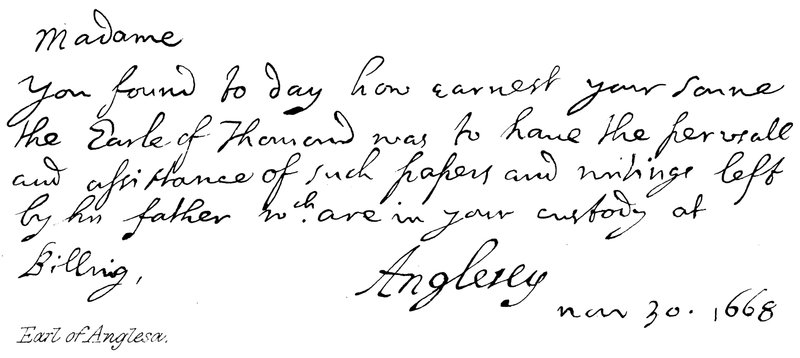 Madame
You found to day how earnest your sonne
the Earle of Thomond was to haue the perusall
and assistance of such papers and writings left
by his father wch. are in your custody at
Billing,
Anglesey
nov 30. 1668
Earl of Anglesa.